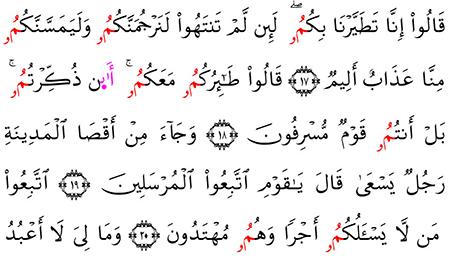 قَالُوٓا۟ إِنَّا تَطَيَّرْنَا بِكُمُۥ ۖ لَئِن لَّمْ تَنتَهُوا۟ لَنَرْجُمَنَّكُمُۥ وَلَيَمَسَّنَّكُمُۥ
مِنَّا عَذَابٌ أَلِيمٌ ﴿١٧﴾ قَالُوا۟ طَٰٓئِرُكُمُۥ مَعَكُمُۥٓ ۚ أَا۟ىِٕن ذُكِّرْتُمُۥ ۚ
بَلْ أَنتُمُۥ قَوْمٌ مُّسْرِفُونَ ﴿١٨﴾ وَجَآءَ مِنْ أَقْصَا ٱلْمَدِينَةِ
رَجُلٌ يَسْعَىٰ قَالَ يَٰقَوْمِ ٱتَّبِعُوا۟ ٱلْمُرْسَلِينَ ﴿١٩﴾ ٱتَّبِعُوا۟
مَن لَّا يَسْـَٔلُكُمُۥٓ أَجْرًا وَهُمُۥ مُهْتَدُونَ ﴿٢٠﴾ وَمَا لِىَ لَآ أَعْبُدُ